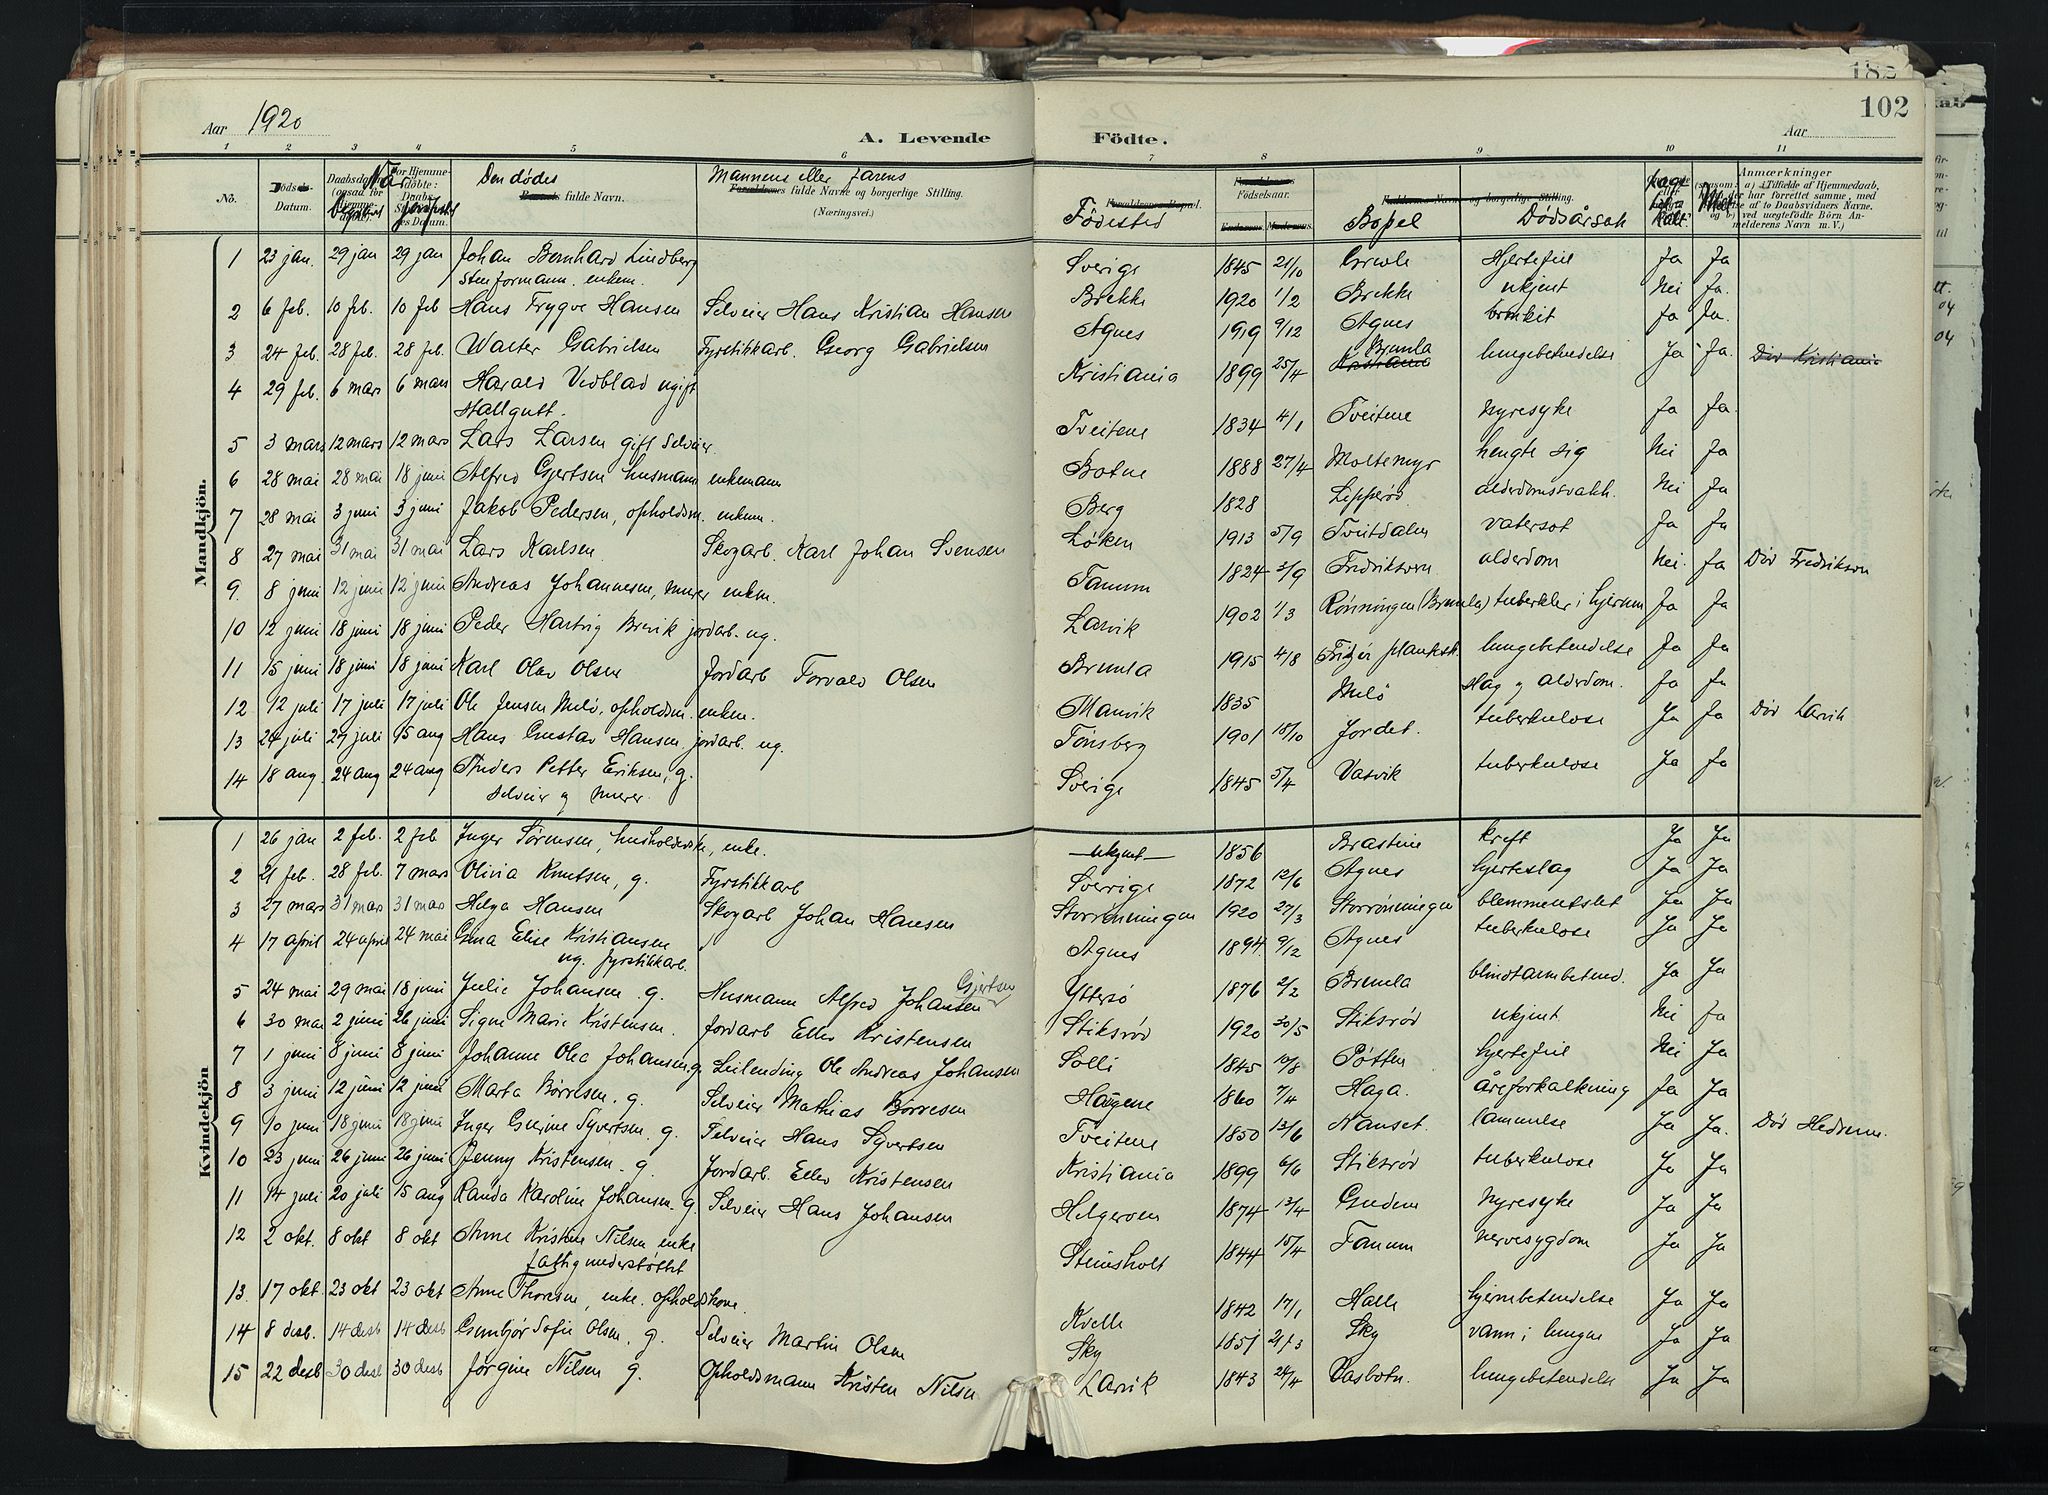 182
102
Aar 1920
A. Levende Födte.
Aar
1 2 3 4 5 6 7 8 9 10 11
No. Datum. Den dødes fulde Navn. Mannens eller farens fulde Navne og borgerlige Stilling. (Næringsvei.) Fødested Fødselsaar. Bopel Dødsårsak Anmærkninger
Mandkjön.
1 23 jan. 29 jan 29 jan Johan Bernhard Lindberg Sverige 1845 21/10 Hjertefeil Ja Ja
Stenformann. enkem.
2 6 feb. 10 feb. 10 feb Hans Trygve Hansen Selveier Hans Kristian Hansen Brekke 1920 1/2 Brekke ukjent Nei Ja.
3 24 feb. 28 feb. 28 feb. Walter Gabrielsen Fyrstikkarb. Georg Gabrielsen Agnes 1919 9/12 Agnes bronkit Ja Ja.
4 29 feb. 6 mars 6 mars Harald Vedblad ugift Kristiania 1899 25/4 Brunla Kristiania lungebetendelse Ja Ja. Død Kristiania
Stallgutt.
5 3 mars 12 mars 12 mars Lars Larsen gift selveier. Tveitene 1834 4/1 Tveitene nyresyke Ja Ja.
6 28 mai 28 mai 18 juni Alfred Gjertsen husmann enkemann Botne 1888 27/4 Moltemyr hengte sig Nei Ja
7 28 mai 3 juni 3 juni Jakob Pedersen, opholdsm. enkem. Berg 1828 Lepperød alderdomssvakh. Nei Ja
8 27 mai 31 mai 31 mai Lars Karlsen Skogarb. Karl Johan Svensen Løken 1913 5/9 Tveitdalen vatersot Ja Ja
9. 8 juni 12 juni 12 juni Andreas Johannesen, murer enkem. Tanum 1824 3/9 Fredriksvern alderdom Nei. Ja Død Fredriksvern
10 12 juni 18 juni 18 juni Peder Hartvig Brevik jordarb. ug. Larvik 1902 1/3 Rønningen (Brunla) tuberkler i hjernen Ja Ja
11 15 juni 18 juni 18 juni Karl Olav Olsen Jordarb Torvald Olsen Brunla 1915 4/8 lungebetendelse Ja Ja
12 12 juli 17 juli 17 juli Ole Jensen Melø, opholdsm. enkem. Manvik 1835 Melø slag og alderdom. Ja Ja
13 24 juli 27 juli 15 aug Hans Gustav Hansen jordarb. ug. Tønsberg 1901 18/10 Jordet. tuberkulose Ja Ja Død Larvik
14 18 aug. 24 aug 24 aug Anders Petter Eriksen, g. Sverige 1845 5/4 Vasvik tuberkulose Ja Ja
selveier og murer.
Kvindekjön
1 26 jan 2 feb. 2 feb Inger Sørensen, husholderske, enke. ukjent 1856 kreft Ja Ja
2 21 feb. 28 feb. 7 mars Olivia Knutsen, g. Fyrstikkarb Sverige 1872 12/6 Agnes hjerteslag Ja Ja
3 27 mars 31 mars 31 mars Helga Hansen Skogarb Johan Hansen Storrønningen 1920 27/3 Storrønningen Ja Ja
4 17 april 24 april 24 mai Gina Elise Kristiansen Agnes 1894 9/12 Agnes tuberkulose Ja Ja
ug. fyrstikkarb.
5 24 mai 29 mai 18 juni Julie Johansen. g. Husmann Alfred Johansen Gjertsen Yttersø 1876 2/2 Brunla blindtarmbetend. Ja Ja
6 30 mai 2 juni 26 juni Signe Marie Kristensen. Jordarb Ellev Kristensen Stiksrød 1920 30/5 Stiksrød ukjent Nei Ja
7 1 juni 8 juni 8 juni Johanne Olea Johansen. g Leilending Ole Andreas Johansen Solli 1845 10/8 Pøtten hjertefeil Nei Ja
8 3 juni 12 juni 12 juni Marta Børresen. g. Selveier Mathias Børresen Haugene 1860 7/4 Haga. åreforkalkning Ja Ja
9 10 juni 18 juni 18 juni Inger Gurine Syvertsen. g. Selveier Hans Syvertsen Tveitene 1850 13/6 Nanset. lammelse Ja Ja. Død Hedrum.
10 23 juni 26 juni 26 juni Jenny Kristensen. g. Jordarb. Ellev Kristensen Kristiania 1899 6/6 Stiksrød tuberkulose Ja Ja
11 14 juli 20 juli 15 aug Randa Karoline Johansen. g. Selveier Hans Johansen Helgeroen 1874 13/4 Gudem nyresyke Ja Ja
12 2 okt. 8 okt 8 okt Anne Kristine Nilsen enke Steinsholt 1844 15/4 Tanum nervesygdom Ja Ja
fattigunderstøttet
13. 17 okt. 23 okt 23 okt Anne Thoresen, enke. opholdskone. Kvelle 1842 17/1 Halle hjernebetendelse Ja Ja
14 8 desb. 14 desb 14 desb Gunbjør Sofie Olsen. g. Selveier Martin Olsen Sky 1851 21/3 Sky vann i lungene Ja Ja
15 22 desb 30 desb 30 desb Jørgine Nilsen g. Opholdsmann Kristen Nilsen Larvik 1843 24/4 Vasbotn. lungebetendelse Ja Ja